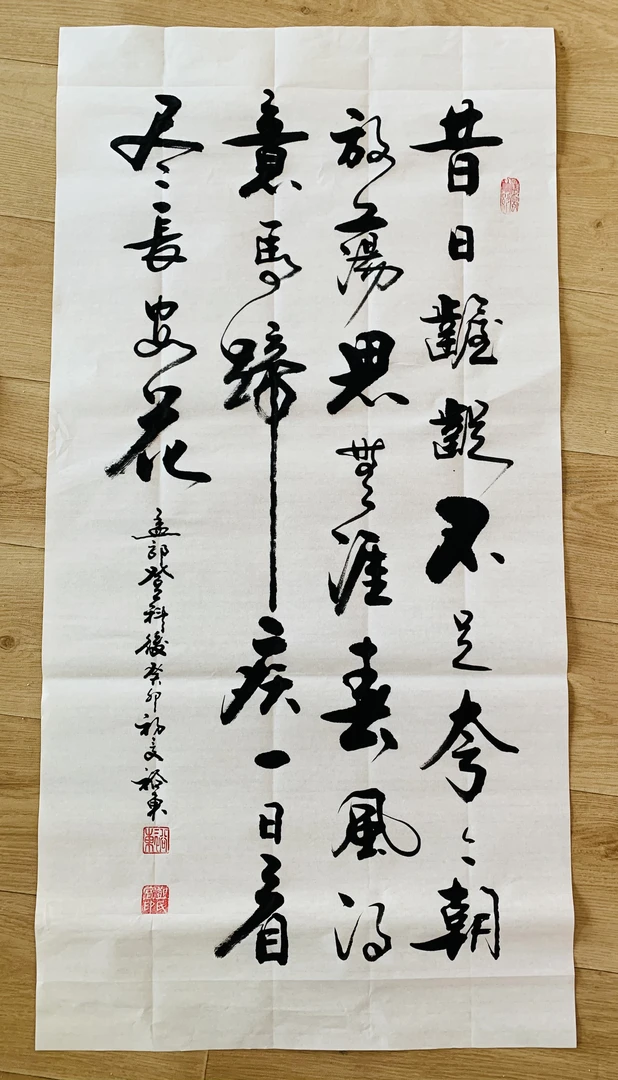 昔日齷齪不足夸今朝
放蕩思無涯春風得
意馬蹄疾一日看
尽長安花
孟郊登科後癸卯初夏裕東